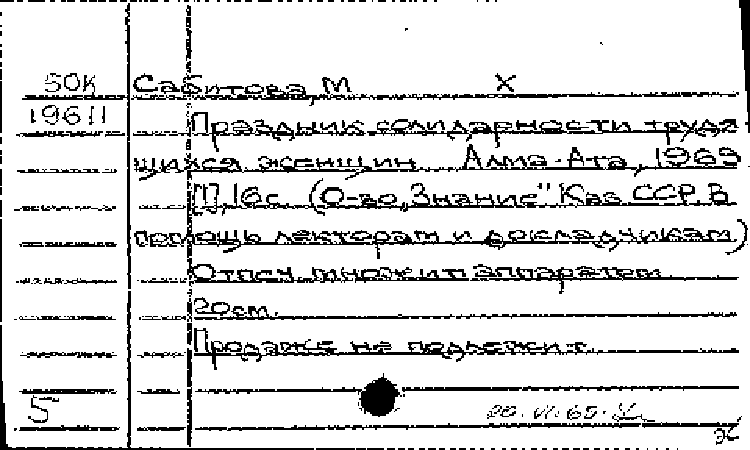 50К Сабитова, М Х
19611 Праздник солидарности трудя
щихся женщин Алма-Ата, 1965
[1], 16с. (О-во „Знание" Каз ССР. В
помощь лекторам и докладчикам)
Отпеч. множит аппаратом
20см.
Продаже не подлежит.
5 20.VI.65.